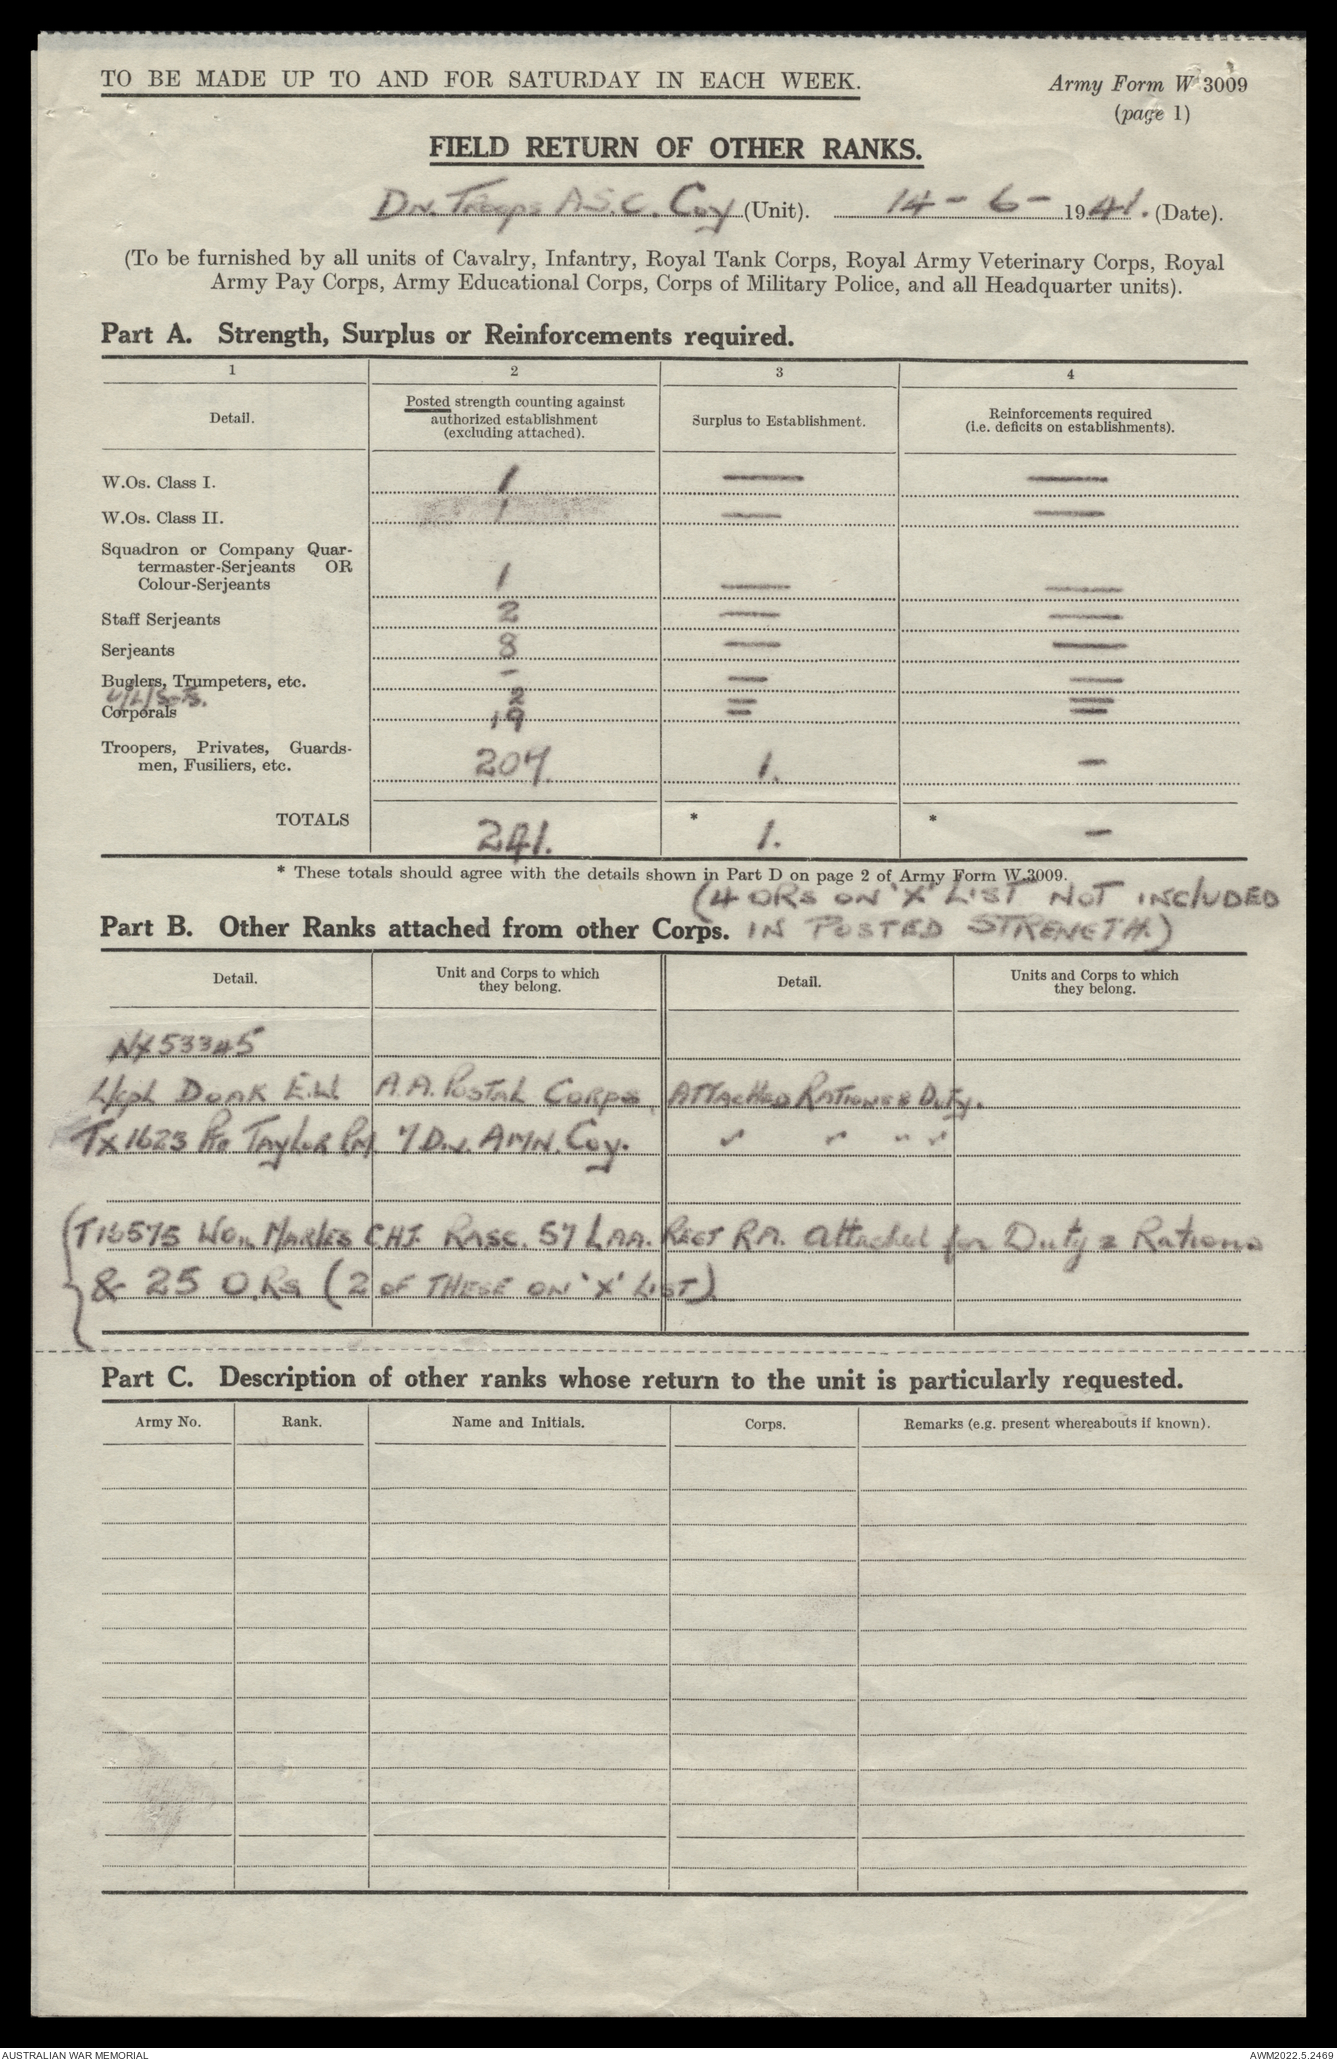 TO BE MADE UP TO AND FOR SATURDAY IN EACH WEEK. Army Form W 3009
(page 1)
FIELD RETURN OF OTHER RANKS.
Dn. Troops A.S.C. Coy (Unit). 14 - 6 - 1941. (Date).
(To be furnished by all units of Cavalry, Infantry, Royal Tank Corps, Royal Army Veterinary Corps, Royal
Army Pay Corps, Army Educational Corps, Corps of Military Police, and all Headquarter units).
Part A. Strength, Surplus or Reinforcements required.
1 2 3 4
Detail. Posted strength counting against authorized establishment (excluding attached). Surplus to Establishment. Reinforcements required (i.e. deficits on establishments).
W.Os. Class I. 1 — —
W.Os. Class II. 1 — —
Squadron or Company Quar-
termaster-Serjeants OR
Colour-Serjeants 1 — —
Staff Serjeants 2 — —
Serjeants 8 — —
Buglers, Trumpeters, etc. - — —
2 — —
Corporals 19 — —
Troopers, Privates, Guards-
men, Fusiliers, etc. 207. 1. —
TOTALS 241. * 1. * —
* These totals should agree with the details shown in Part D on page 2 of Army Form W.3009.
(4 ORs ON 'X' LIST NOT INCLUDED
Part B. Other Ranks attached from other Corps. IN POSTED STRENGTH.)
Detail. Unit and Corps to which they belong. Detail. Units and Corps to which they belong.
NX53345
L/Cpl DOAK E.W. A.A. POSTAL CORPS, ATTACHED RATIONS & DUTY.
TX1623 Pte TAYLOR 7 Div. AMN. Coy. " " " "
(T16575 MARLES C.H.J. RASC. 57 L.AA. REGT R.A. attached for Duty & Rations
& 25 O.Rs (2 OF THESE ON 'X' LIST)
Part C. Description of other ranks whose return to the unit is particularly requested.
Army No. Rank. Name and Initials. Corps. Remarks (e.g. present whereabouts if known).
AUSTRALIAN WAR MEMORIAL AWM2022.5.2469